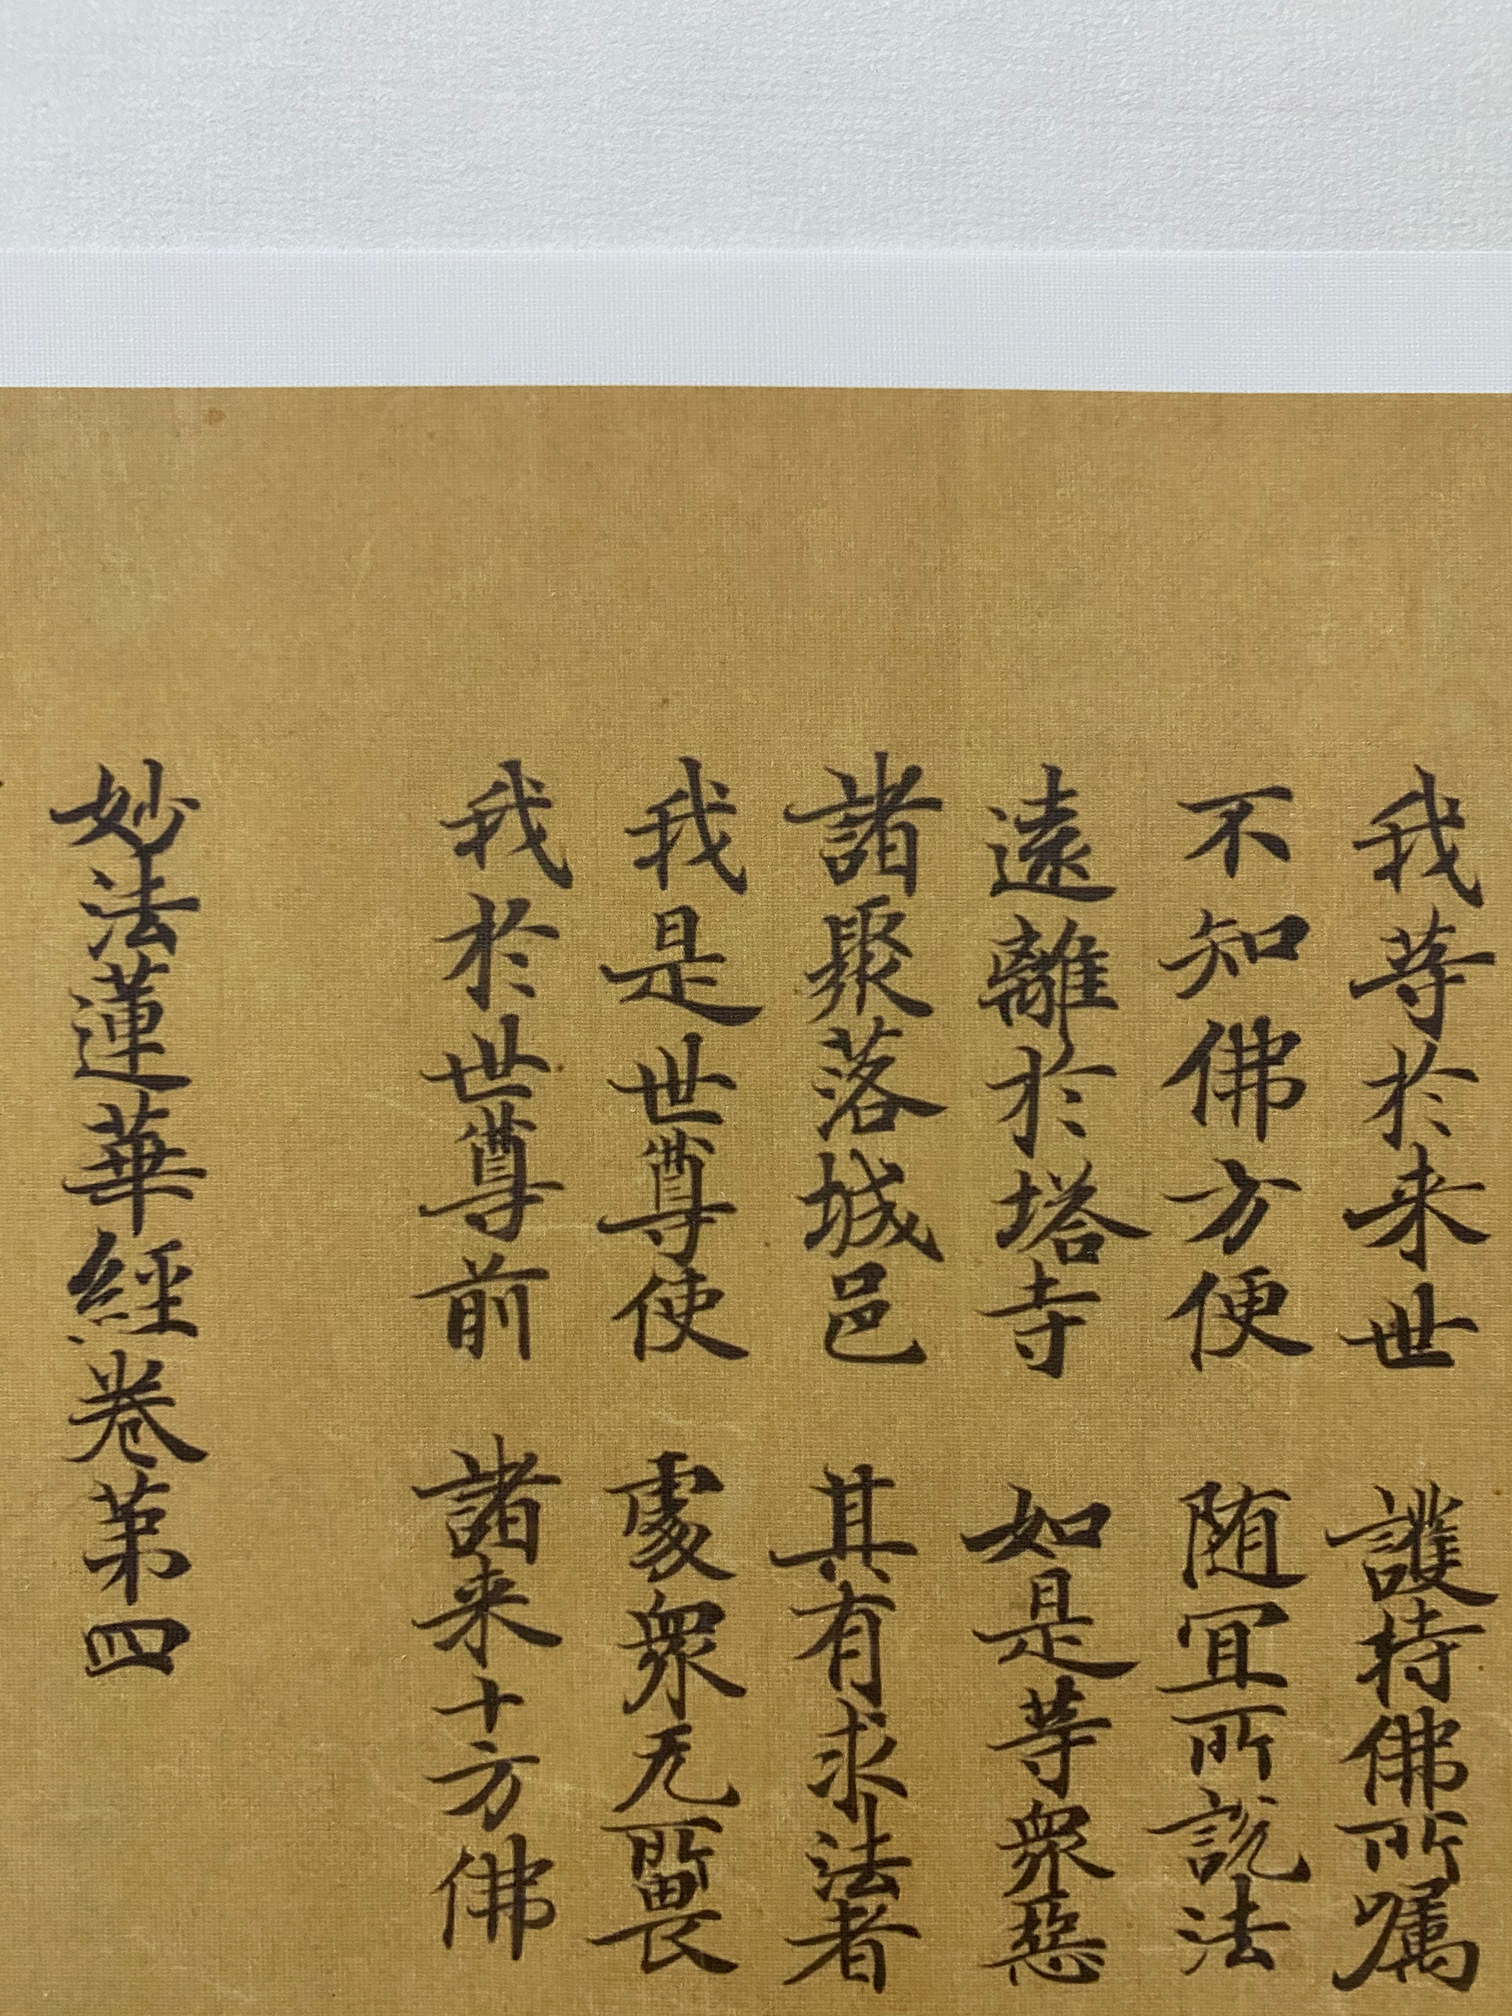 我等於来世 護持佛所嘱
不知佛方便 随宜所說法
遠離於塔寺 如是等衆惡
諸聚落城邑 其有求法者
我是世尊使 處衆无所畏
我於世尊前 諸来十方佛
妙法蓮華經卷第四